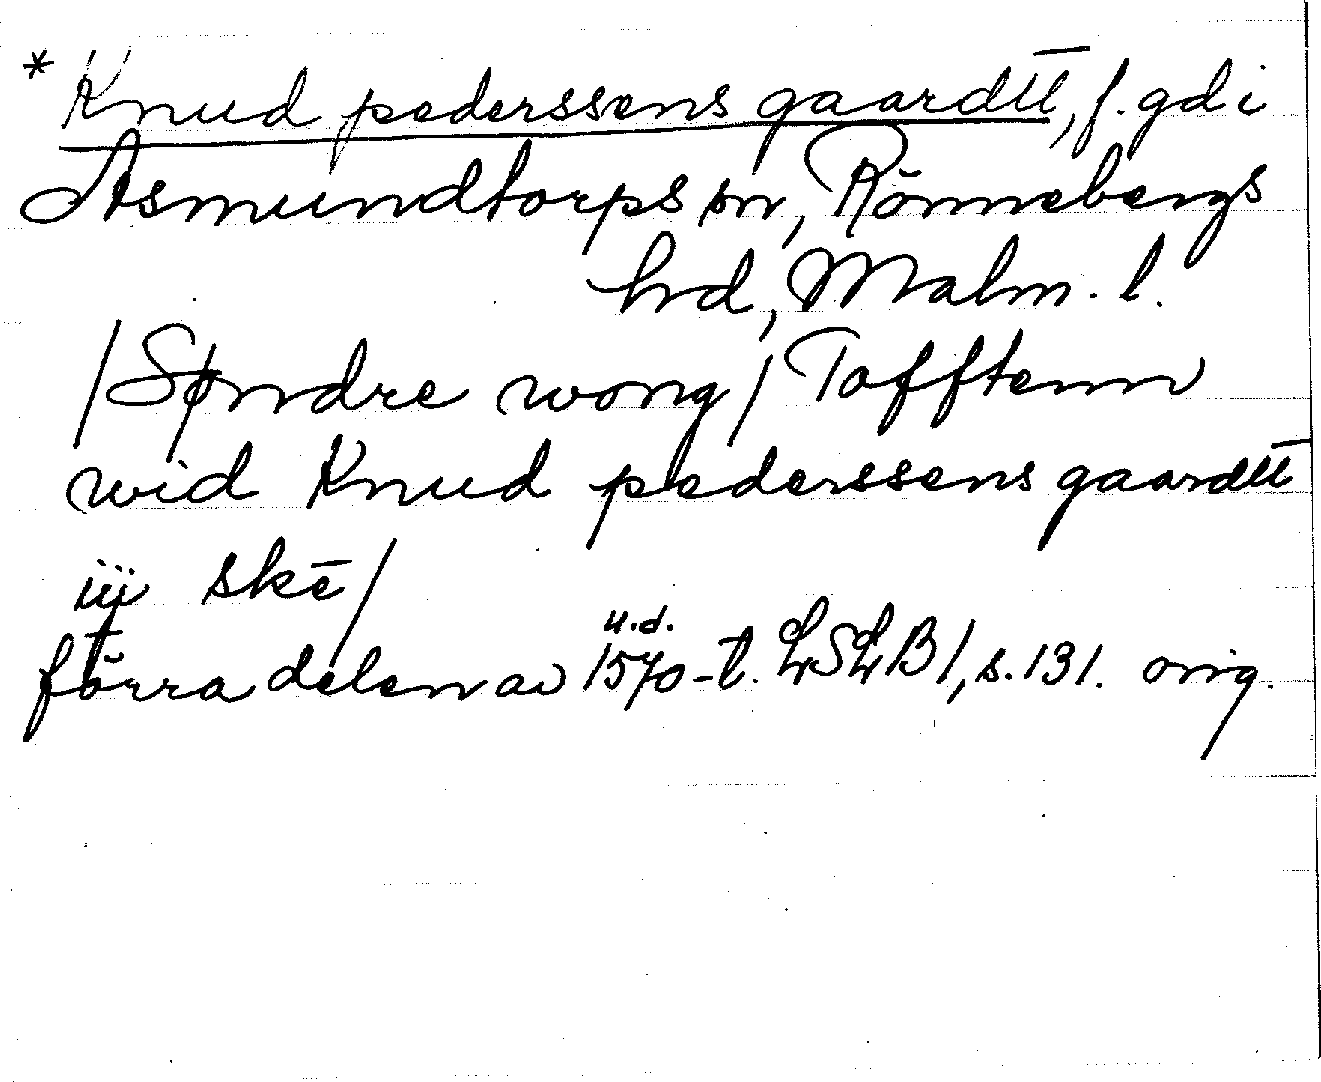 * Knud pederssens gaardtt̄, f. gd i
Asmundtorps sn, Rönnebergs
hrd, Malm. l.
/Søndre wong/ Tofftenn
wid Knud pederssens gaardtt̄
iij skē/
u.d.
förra delen av 1570-t. LSLB1, s. 131. orig.